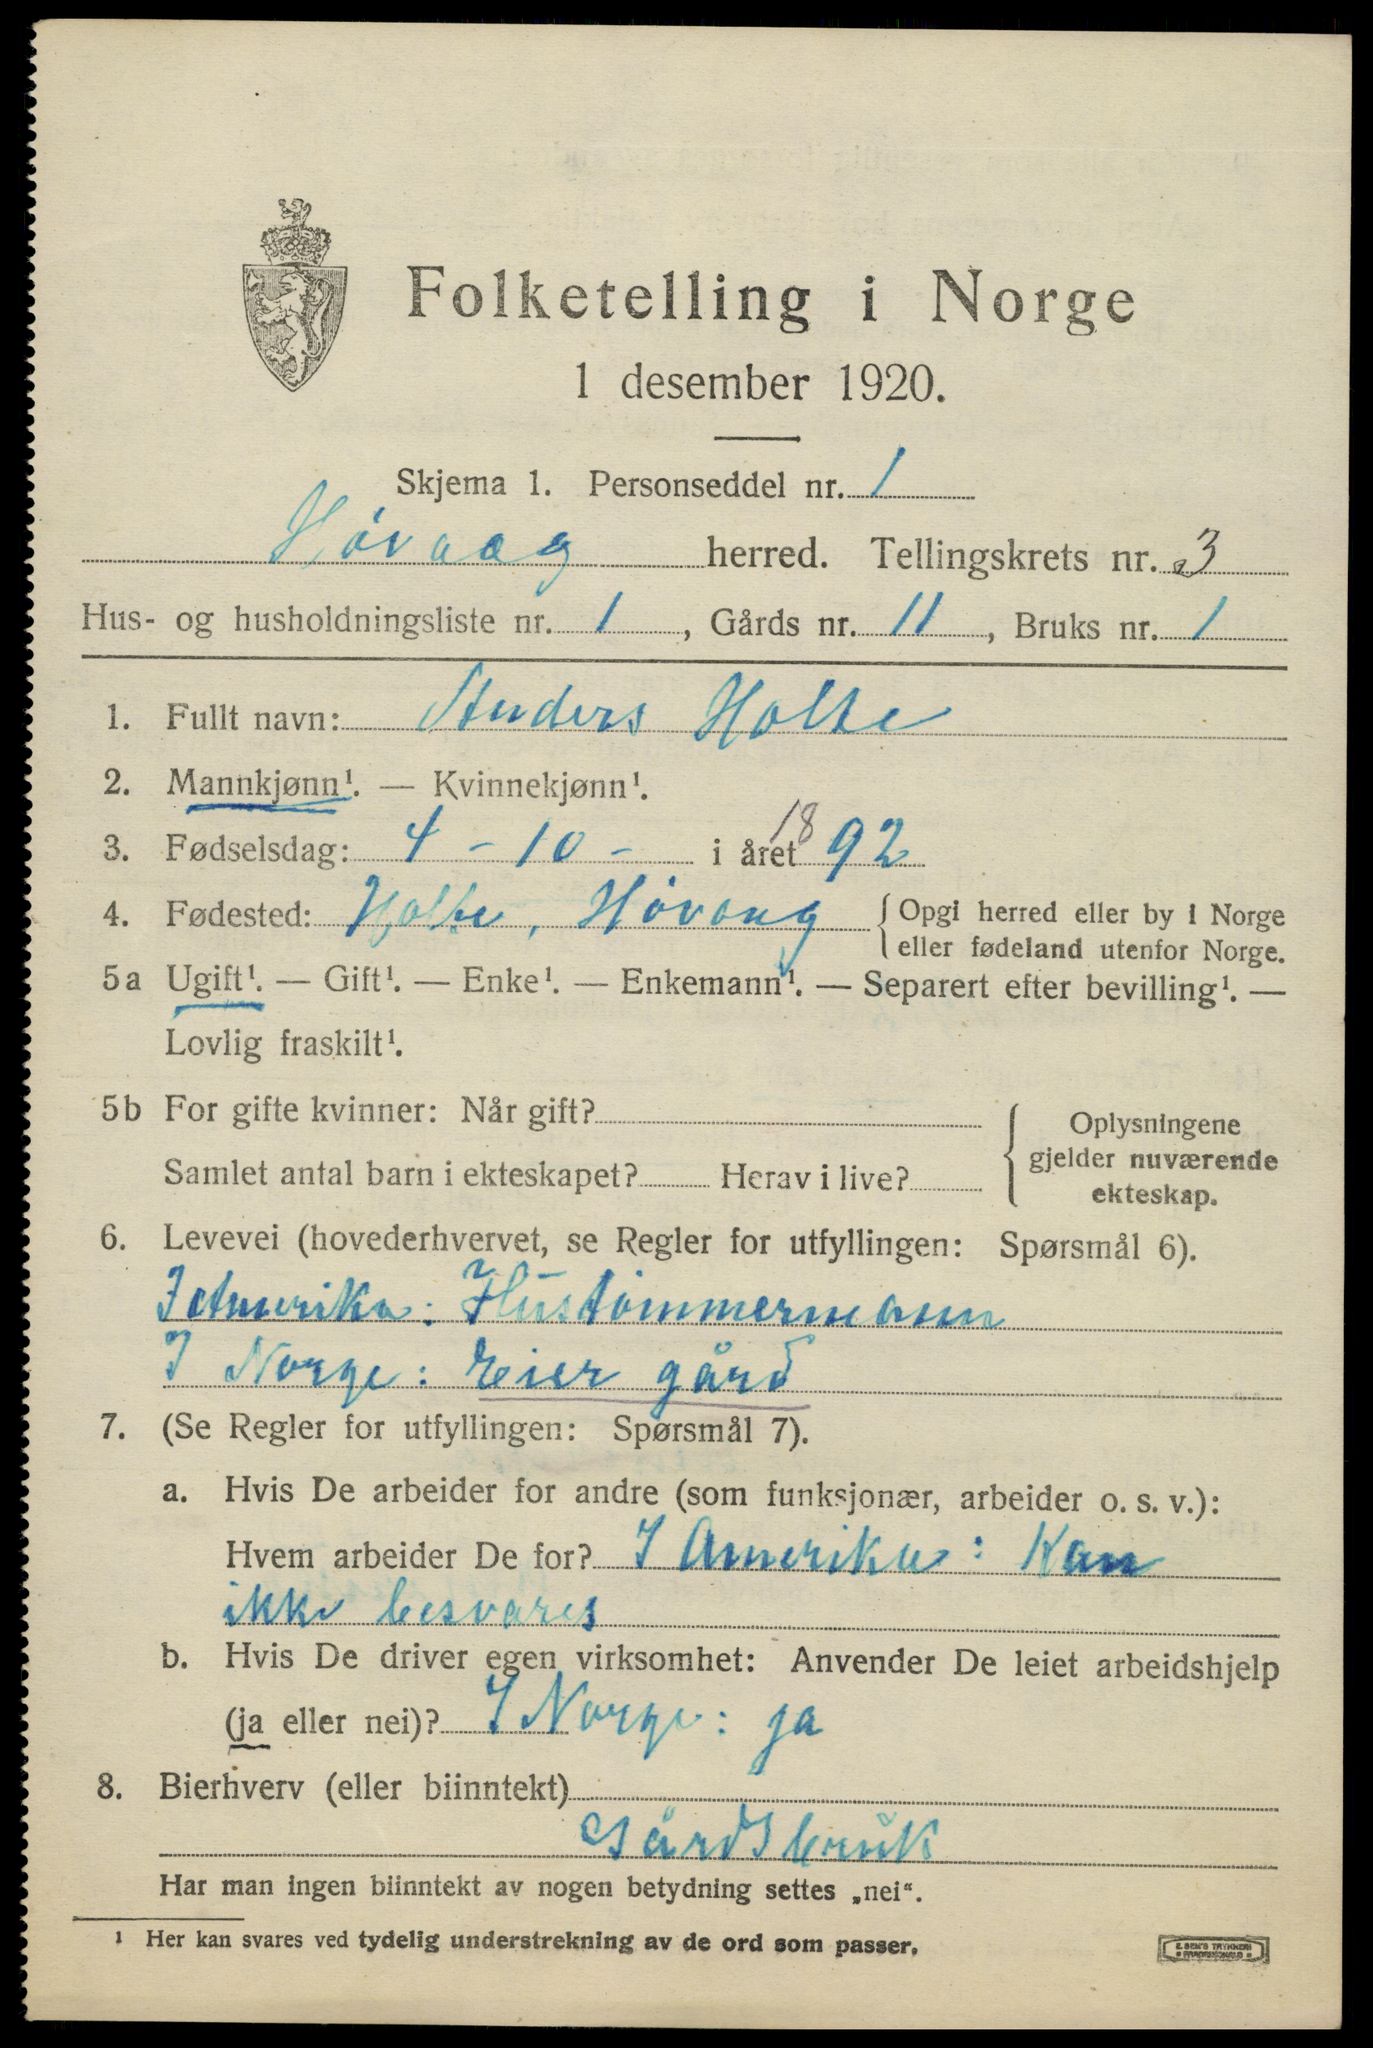 Folketelling i Norge
1 desember 1920.
Skjema 1. Personseddel nr. 1
Høvaag herred. Tellingskrets nr. 3
Hus- og husholdningsliste nr. 1, Gårds nr. 11, Bruks nr. 1
1. Fullt navn: Anders Holte
2. Mannkjønn¹. — Kvinnekjønn¹.
3. Fødselsdag: 4 - 10 - i året 1892
4. Fødested: Holte, Høvaag {Opgi herred eller by i Norge
eller fødeland utenfor Norge.
5a Ugift¹. — Gift¹. — Enke¹. — Enkemann¹. — Separert efter bevilling¹. —
Lovlig fraskilt¹.
5b For gifte kvinner: Når gift?
Samlet antal barn i ekteskapet? Herav i live?
Oplysningene
gjelder nuværende
ekteskap.
6. Levevei (hovederhvervet, se Regler for utfyllingen: Spørsmål 6).
I Amerika: Hustømmermann
I Norge: eier gård
7. (Se Regler for utfyllingen: Spørsmål 7).
a. Hvis De arbeider for andre (som funksjonær, arbeider o. s. v.):
Hvem arbeider De for? I Amerika: Kan
ikke besvares
b. Hvis De driver egen virksomhet: Anvender De leiet arbeidshjelp
(ja eller nei)? I Norge: ja
8. Bierhverv (eller biinntekt)
Gårdsbruk
Har man ingen biinntekt av nogen betydning settes „nei“.
¹ Her kan svares ved tydelig understrekning av de ord som passer.